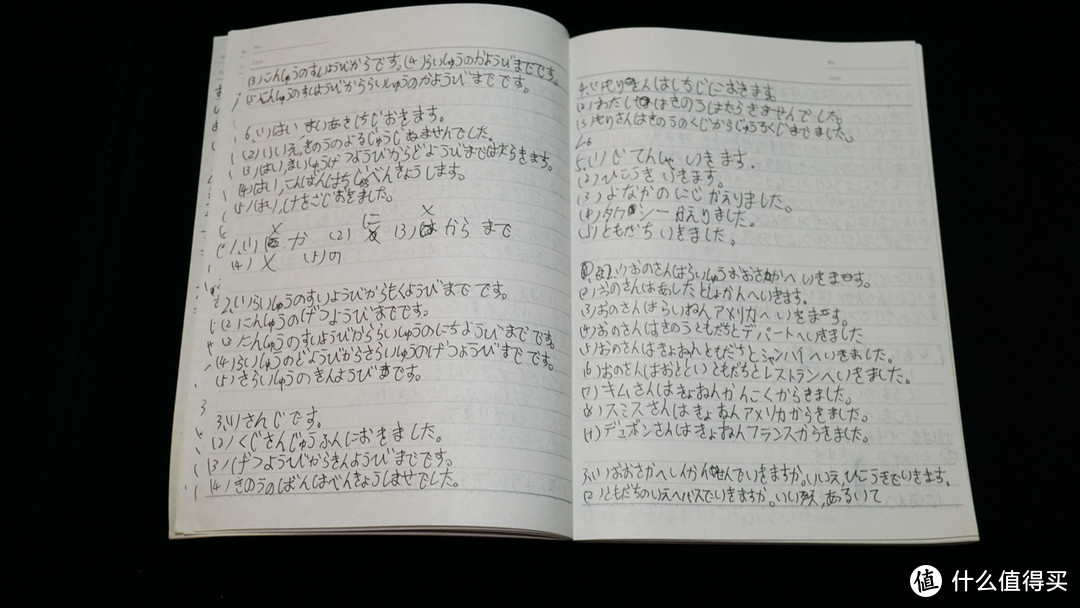 (3)こんしゅうのすいようびからです。(4)らいしゅうのかようびまでです。
(5)こんしゅうのすいようびかららいしゅうのかようびまでです。
6.(1)はい まいあさしちじおきます。
(2)いいえ,きのうのよるじゅうじねませんでした。
(3)はい,まいしゅうげつようびからどようびまではたらきます。
(4)はい,こんばんはちじべんきょうします。
(5)はい,けさごじおきました。
1.(1) か (2) に (3) は から まで
(4) × (5)の
2.(1)らいしゅうのすいようびからもくようびまでです。
(2)こんしゅうのげつようびまでです。
(3)こんしゅうのすいようびかららいしゅうのにちようびまでです。
(4)らいしゅうのどようびからさらいしゅうのげつようびまでです。
(5)さらいしゅうのきんようびです。
3
3.(1)さんじです。
(2)くじさんじゅうふんにおきました。
(3)げつようびからきんようびまでです。
(4)きのうのばんはべんきょうしませでした。
4.(1)もりさんはしちじにおきます。
(2)わたしはきのうはたらきませんでした。
(3)もりさんはきのうのくじからじゅうろくじまでました。
5.(1)じてんしゃ いきます。
(2)ひこうき いきます。
(3)よなかのにじ かえりました。
(4)タクシー かえりました。
(5)ともだち いきました。
2.(1)おのさんはらいしゅうおおさかへ いきます。
(2)おのさんはあしたとしょかんへいきます。
(3)おのさんはらいねんアメリカへいきます。
(4)おのさんはきのうともだちとデパートへいきました
(5)おのさんはきょねんともだちとシャンハイへいきました。
(6)おのさんはおとといともだちとレストランへいきました。
(7)キムさんはきょねんかんこくからきました。
(8)スミスさんはきょねんアメリカからきました。
(9)デュポンさんはきょねんフランスからきました。
3.(1)おおさかへしんかんせんでいきますか。いいえ,ひこうきでいきます。
(2)ともだちのいえへバスでいきますか。いいえ,あるいて
值 什么值得买